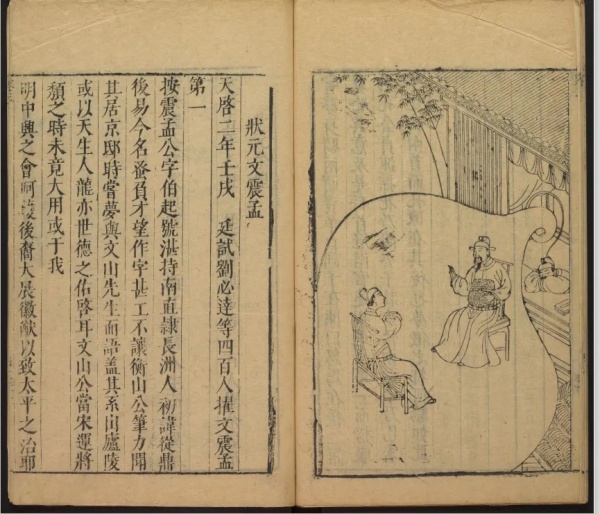 狀元文震孟
天啓二年壬戌　廷試劉必達等四百人擢文震孟
第一
按震孟公字伯起號湛持南直隷長洲人初諱從鼎
後易今名蚤負才望作字甚工不讓衡山公筆力聞
其居京邸時嘗夢與文山先生面語盖其系出廬陵
或以天生人龍亦世德之佑啓耳文山公當宋運將
頽之時未竟大用或于我
明中興之會後裔大展徽猷以致太平之治耶